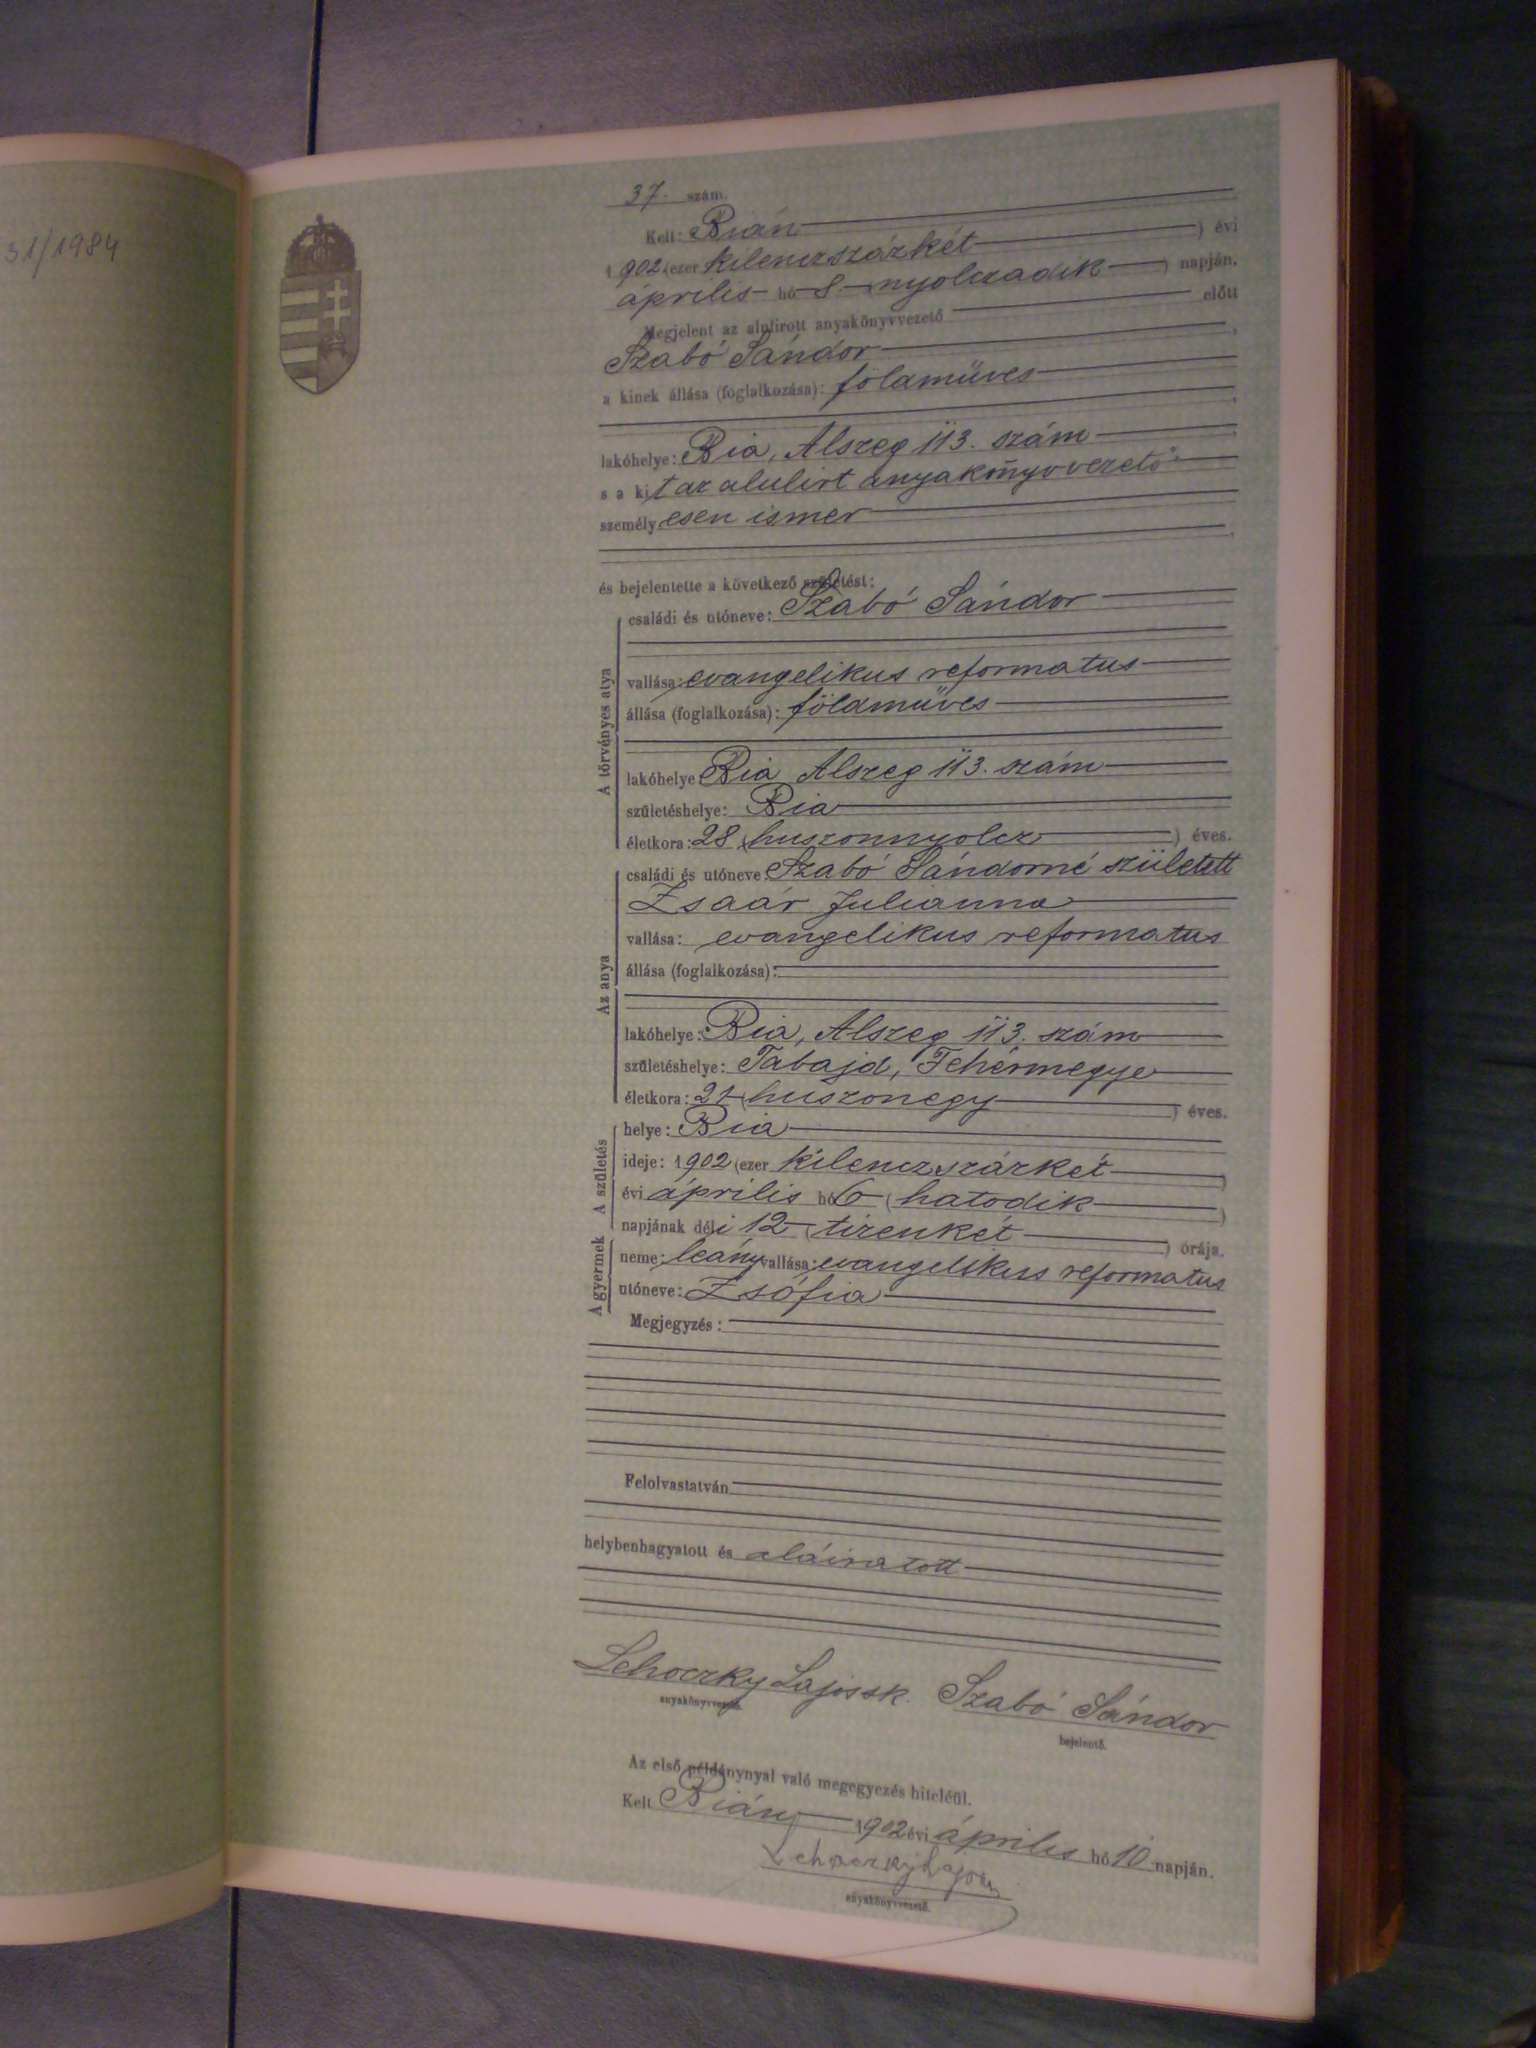 31/1984
37. szám.
Kelt: Bián
1902 (ezer kilenczszázkét ) évi
április hó 8. nyolczadik ) napján.
Megjelent az alulirott anyakönyvvezető előtt
Szabó Sándor ,
a kinek állása (foglalkozása): földmüves
,
lakóhelye: Bia, Alszeg 113. szám ,
s a kit az alulirt anyakönyvvezető
személyesen ismer
,
és bejelentette a következő születést:
A törvényes atya
családi és utóneve: Szabó Sándor
vallása: evangelikus reformatus
állása (foglalkozása): földmüves
lakóhelye: Bia Alszeg 113. szám
születéshelye: Bia
életkora: 28 (huszonnyolcz ) éves.
Az anya
családi és utóneve: Szabó Sándorné született
Zsaár Julianna
vallása: evangelikus reformatus
állása (foglalkozása):
lakóhelye: Bia, Alszeg 113. szám
születéshelye: Tabajd, Fehérmegye
életkora: 21 (huszonegy ) éves.
A születés
helye: Bia
ideje: 1902 (ezer kilenczszázkét )
évi április hó 6 (hatodik )
napjának déli 12 (tizenkét ) órája.
A gyermek
neme: leány vallása: evangelikus reformatus
utóneve: Zsófia
Megjegyzés:
Felolvastatván
helybenhagyatott és aláiratott
Lehoczky Lajos sk. Szabó Sándor
anyakönyvvezető. bejelentő.
Az első példánynyal való megegyezés hiteléül.
Kelt Bián 1902 évi április hó 10 napján.
Lehoczky Lajos
anyakönyvvezető.